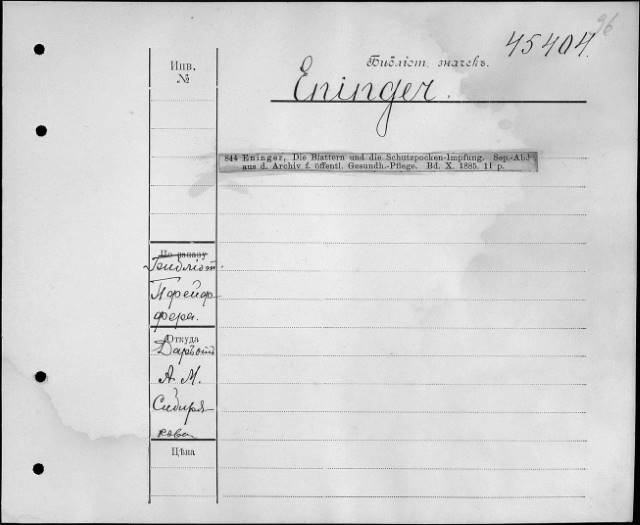 96
45404.
Библіот. значекъ.
Инв.
№
Eninger.
844 Eninger, Die Blattern und die Schutzpocken-Impfung. Sep.-Abd
aus d. Archiv f. öffentl. Gesundh.-Pflege. Bd. X. 1885. 11 p.
По рапорту
Библіот.
Пфейф-
фера.
Откуда
Даръ отъ
А. М.
Сибиря-
кова
Цѣна